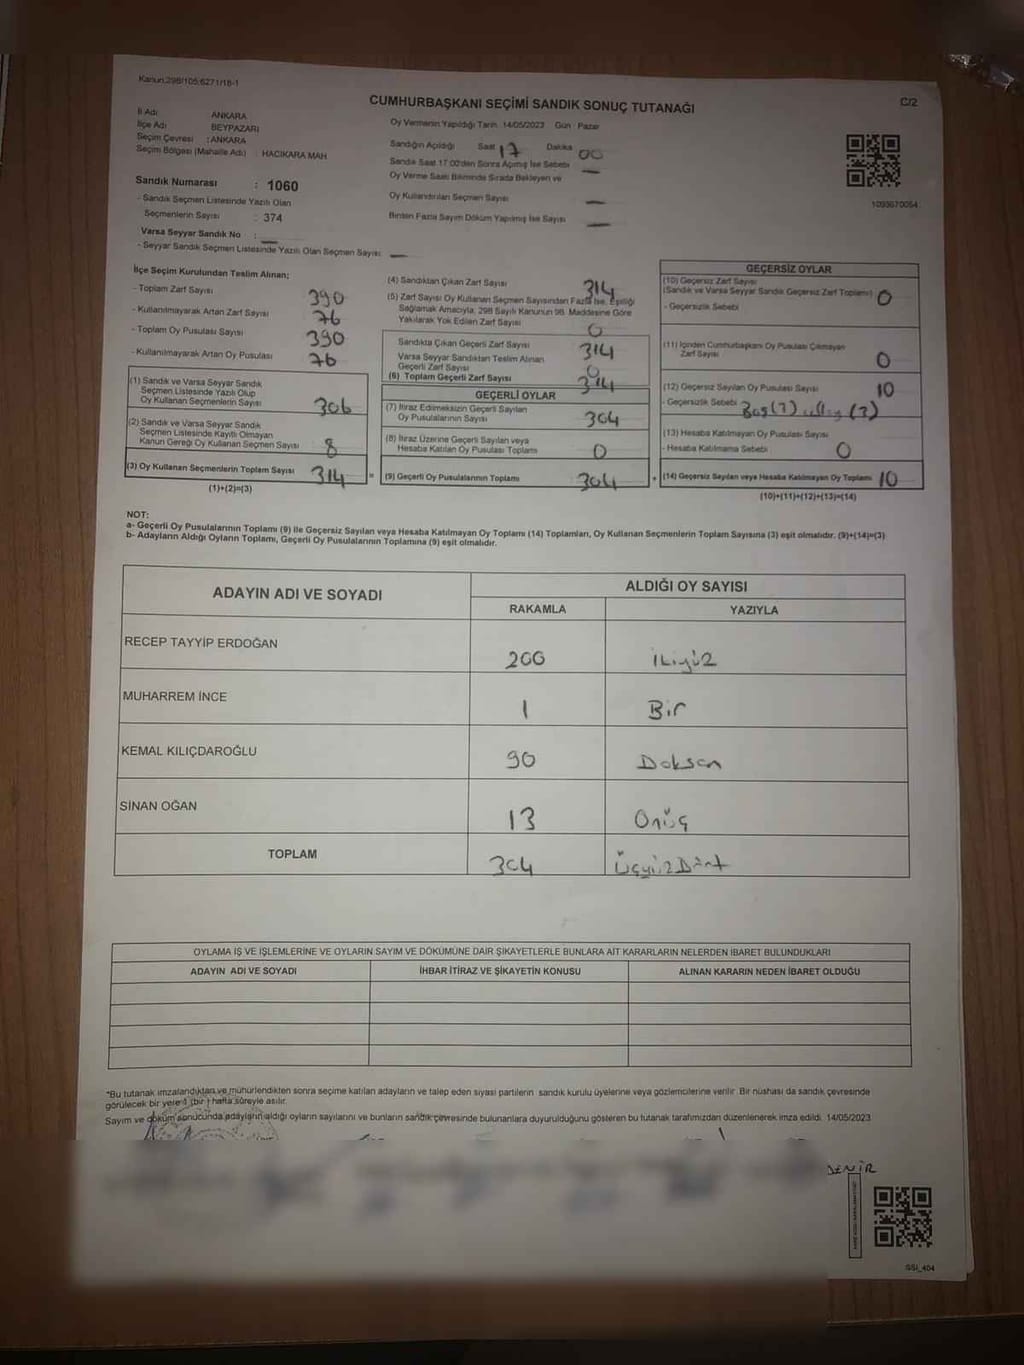 Kanun:298/105;6271/18-1
C/2
CUMHURBAŞKANI SEÇİMİ SANDIK SONUÇ TUTANAĞI
İl Adı ANKARA
İlçe Adı BEYPAZARI
Seçim Çevresi : ANKARA
Seçim Bölgesi (Mahalle Adı) : HACIKARA MAH
Sandık Numarası : 1060
- Sandık Seçmen Listesinde Yazılı Olan
Seçmenlerin Sayısı : 374
Varsa Seyyar Sandık No :
- Seyyar Sandık Seçmen Listesinde Yazılı Olan Seçmen Sayısı
Oy Vermenin Yapıldığı Tarih :14/05/2023 Gün : Pazar
Sandığın Açıldığı Saat 17 Dakika 00
Sandık Saat 17:00'den Sonra Açılmış İse Sebebi
Oy Verme Saati Bitiminde Sırada Bekleyen ve
Oy Kullandırılan Seçmen Sayısı
Birden Fazla Sayım Döküm Yapılmış İse Sayısı
1093670054
İlçe Seçim Kurulundan Teslim Alınan;
- Toplam Zarf Sayısı 390
- Kullanılmayarak Artan Zarf Sayısı 76
- Toplam Oy Pusulası Sayısı 390
- Kullanılmayarak Artan Oy Pusulası 76
(1) Sandık ve Varsa Seyyar Sandık
Seçmen Listesinde Yazılı Olup
Oy Kullanan Seçmenlerin Sayısı 306
(2) Sandık ve Varsa Seyyar Sandık
Seçmen Listesinde Kayıtlı Olmayan
Kanun Gereği Oy Kullanan Seçmen Sayısı 8
(3) Oy Kullanan Seçmenlerin Toplam Sayısı 314
(1)+(2)=(3)
(4) Sandıktan Çıkan Zarf Sayısı 314
(5) Zarf Sayısı Oy Kullanan Seçmen Sayısından Fazla İse, Eşitliği
Sağlamak Amacıyla, 298 Sayılı Kanunun 98. Maddesine Göre
Yakılarak Yok Edilen Zarf Sayısı 0
Sandıkta Çıkan Geçerli Zarf Sayısı 314
Varsa Seyyar Sandıktan Teslim Alınan
Geçerli Zarf Sayısı 0
(6) Toplam Geçerli Zarf Sayısı 314
GEÇERLİ OYLAR
(7) İtiraz Edilmeksizin Geçerli Sayılan
Oy Pusulalarının Sayısı 304
(8) İtiraz Üzerine Geçerli Sayılan veya
Hesaba Katılan Oy Pusulası Toplamı 0
= (9) Geçerli Oy Pusulalarının Toplamı 304 +
GEÇERSİZ OYLAR
(10) Geçersiz Zarf Sayısı
(Sandık ve Varsa Seyyar Sandık Geçersiz Zarf Toplamı) 0
- Geçersizlik Sebebi
(11) İçinden Cumhurbaşkanı Oy Pusulası Çıkmayan
Zarf Sayısı 0
(12) Geçersiz Sayılan Oy Pusulası Sayısı 10
- Geçersizlik Sebebi
(13) Hesaba Katılmayan Oy Pusulası Sayısı
- Hesaba Katılmama Sebebi 0
(14) Geçersiz Sayılan veya Hesaba Katılmayan Oy Toplamı 10
(10)+(11)+(12)+(13)=(14)
NOT:
a- Geçerli Oy Pusulalarının Toplamı (9) ile Geçersiz Sayılan veya Hesaba Katılmayan Oy Toplamı (14) Toplamları, Oy Kullanan Seçmenlerin Toplam Sayısına (3) eşit olmalıdır. (9)+(14)=(3)
b- Adayların Aldığı Oyların Toplamı, Geçerli Oy Pusulalarının Toplamına (9) eşit olmalıdır.
ADAYIN ADI VE SOYADI ALDIĞI OY SAYISI
RAKAMLA YAZIYLA
RECEP TAYYİP ERDOĞAN 200 İkiyüz
MUHARREM İNCE 1 Bir
KEMAL KILIÇDAROĞLU 90 Doksan
SİNAN OĞAN 13 Onüç
TOPLAM 304 ÜçyüzDört
OYLAMA İŞ VE İŞLEMLERİNE VE OYLARIN SAYIM VE DÖKÜMÜNE DAİR ŞİKAYETLERLE BUNLARA AİT KARARLARIN NELERDEN İBARET BULUNDUKLARI
ADAYIN ADI VE SOYADI İHBAR İTİRAZ VE ŞİKAYETİN KONUSU ALINAN KARARIN NEDEN İBARET OLDUĞU
*Bu tutanak imzalandıktan ve mühürlendikten sonra seçime katılan adayların ve talep eden siyasi partilerin sandık kurulu üyelerine veya gözlemcilerine verilir. Bir nüshası da sandık çevresinde
görülecek bir yere 1 (bir ) hafta süreyle asılır.
Sayım ve döküm sonucunda adayların aldığı oyların sayılarını ve bunların sandık çevresinde bulunanlara duyurulduğunu gösteren bu tutanak tarafımızdan düzenlenerek imza edildi. 14/05/2023
DENİR
GSI_404